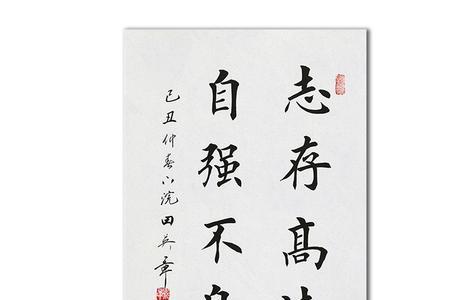 志存髙
自强不
己丑仲春下浣田英章